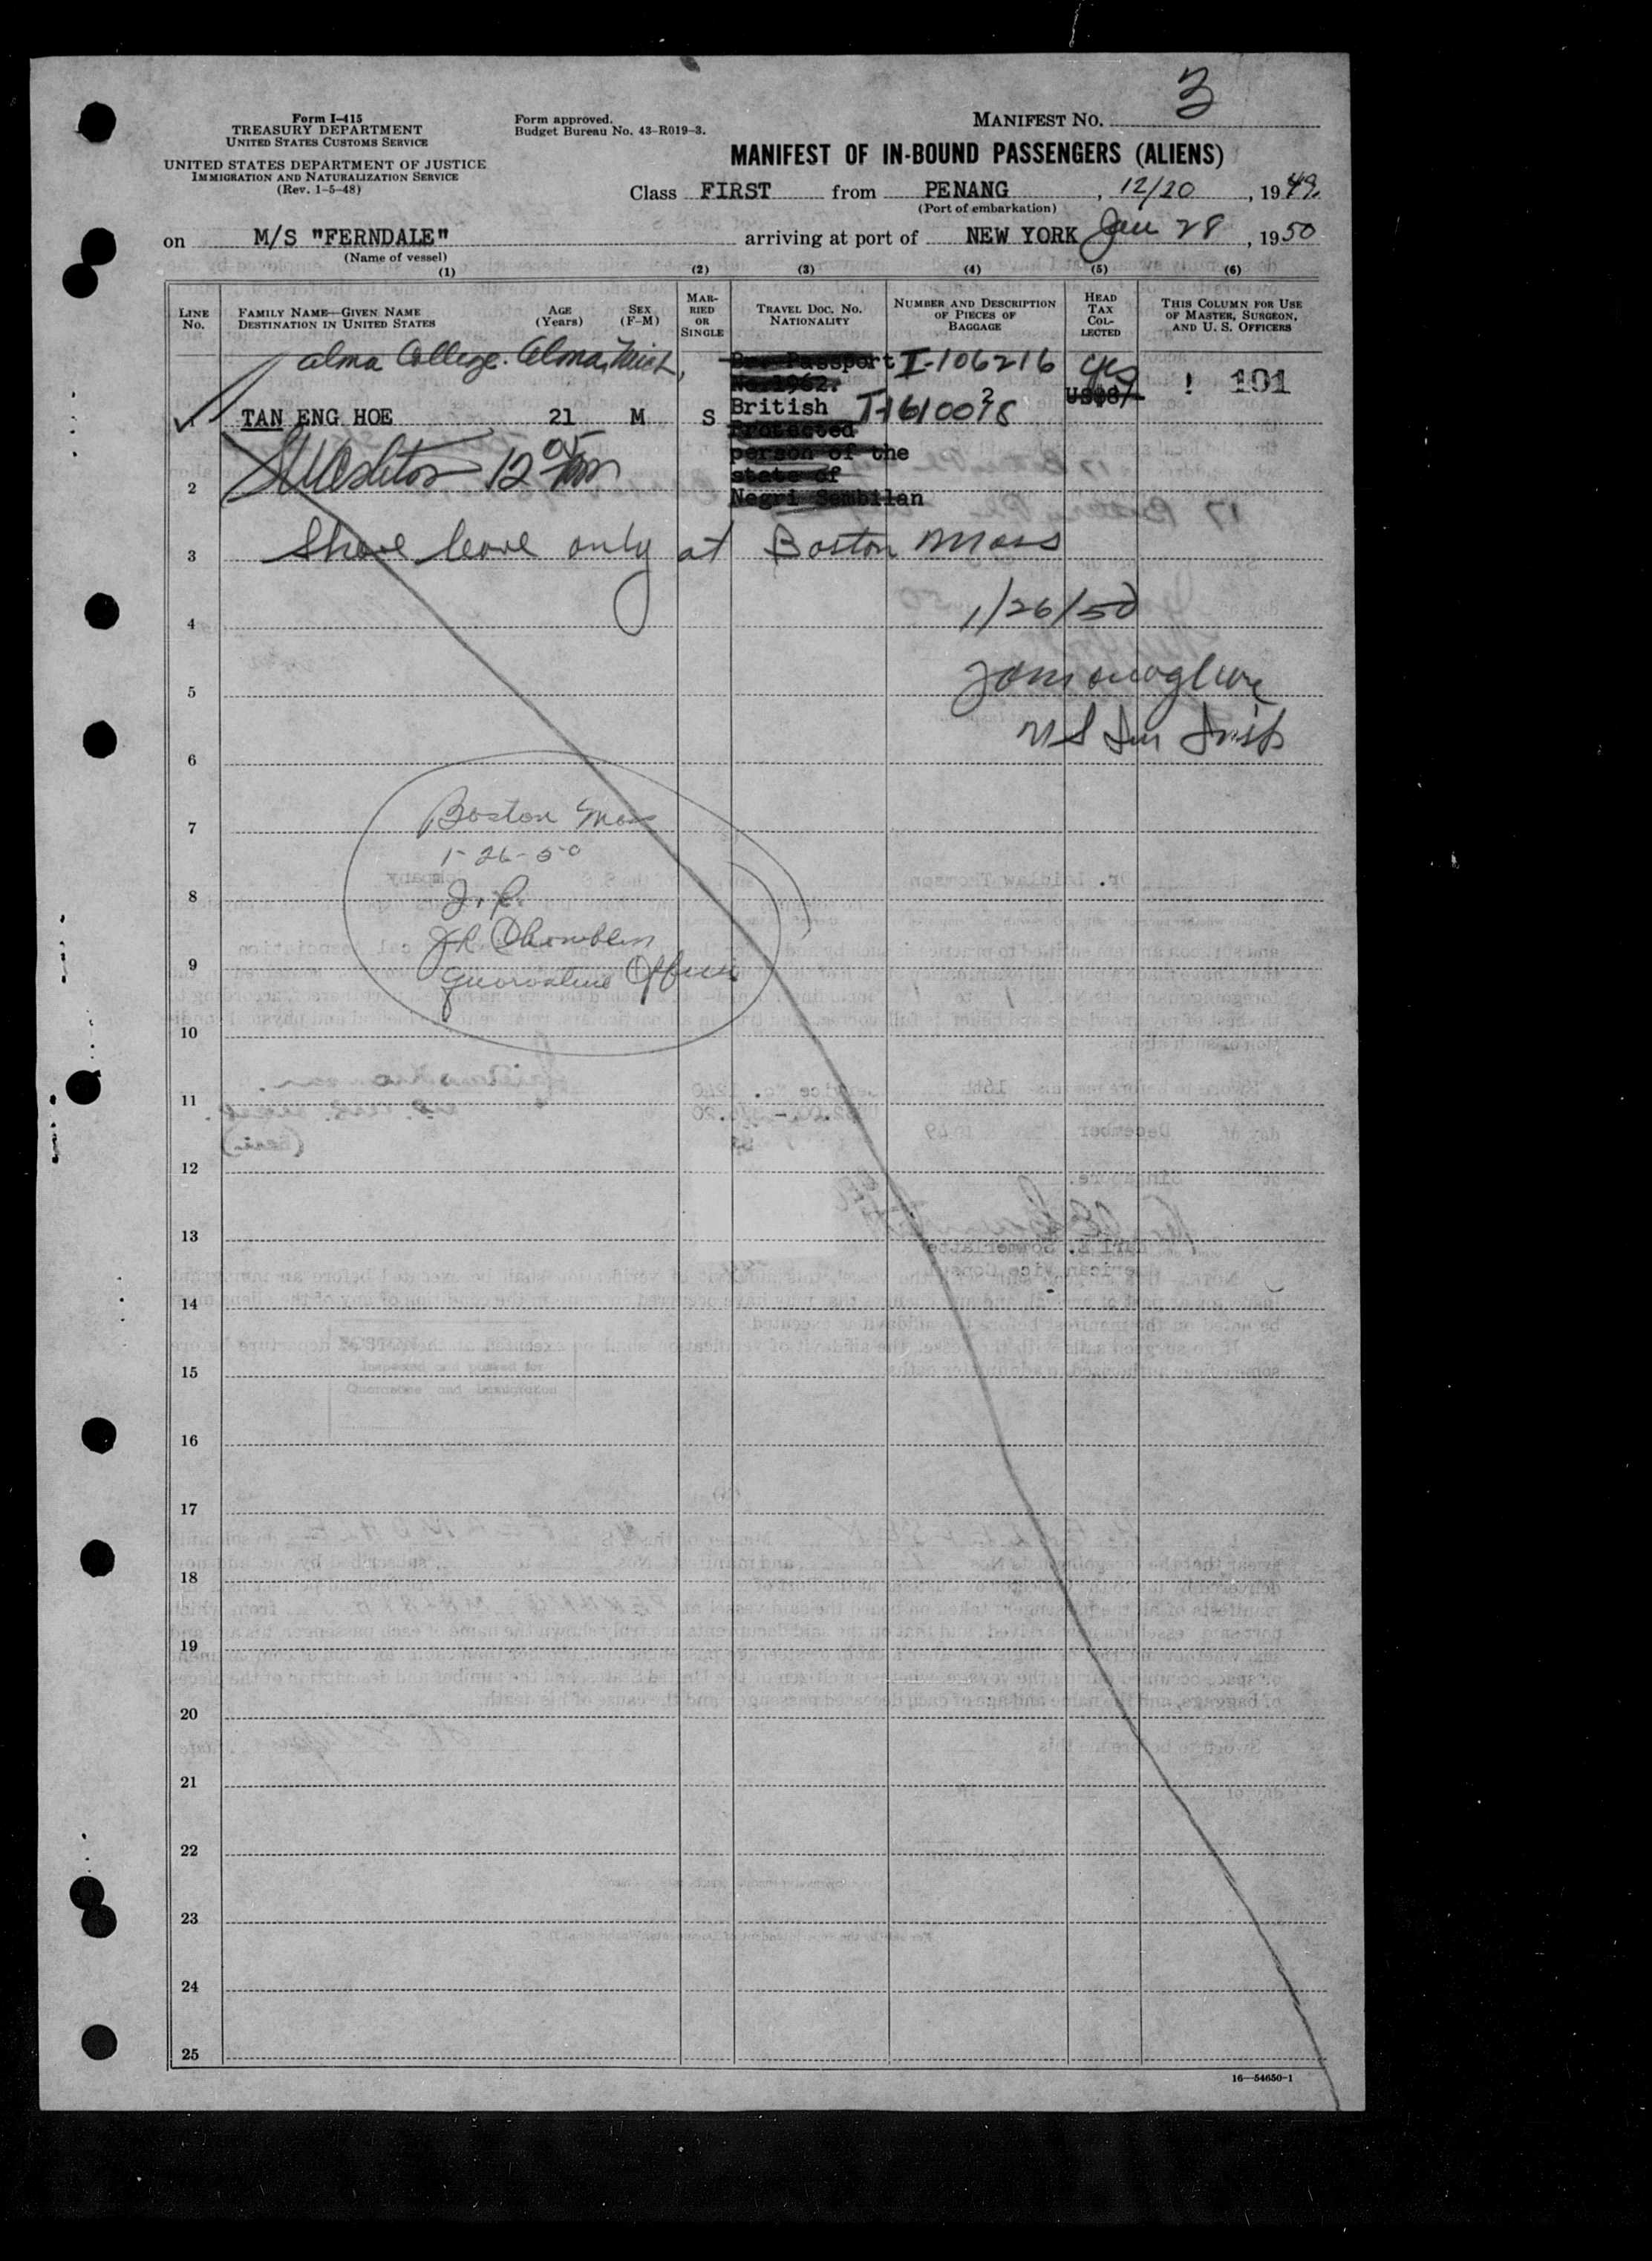 3
Form I-415
TREASURY DEPARTMENT
UNITED STATES CUSTOMS SERVICE
UNITED STATES DEPARTMENT OF JUSTICE
IMMIGRATION AND NATURALIZATION SERVICE
(Rev. 1-5-48)
Form approved.
Budget Bureau No. 43-R019-3.
MANIFEST NO.
MANIFEST OF IN-BOUND PASSENGERS (ALIENS)
Class FIRST from PENANG, 12/20, 1949
(Port of embarkation)
on M/S "FERNDALE" arriving at port of NEW YORK Jan 28, 1950
(Name of vessel)
(1) (2) (3) (4) (5) (6)
LINE No.
FAMILY NAME—GIVEN NAME
DESTINATION IN UNITED STATES
AGE (Years)
SEX (F-M)
MARRIED OR SINGLE
TRAVEL DOC. NO.
NATIONALITY
NUMBER AND DESCRIPTION OF PIECES OF BAGGAGE
HEAD TAX COLLECTED
THIS COLUMN FOR USE OF MASTER, SURGEON, AND U. S. OFFICERS
Alma College. Alma, Mich,
Passport I-106216 yes
No. 1962. US$8/- ! 101
TAN ENG HOE 21 M S British 2
Protected
person of the
state of
Negri Sembilan
12 05
2
Shore leave only at Boston Mass
3
1/26/50
4
5
6
Boston Mass
7
1-26-50
8
9
Quarantine Officer
10
11
12
13
14
15
16
17
18
19
20
21
22
23
24
25
16—54650-1